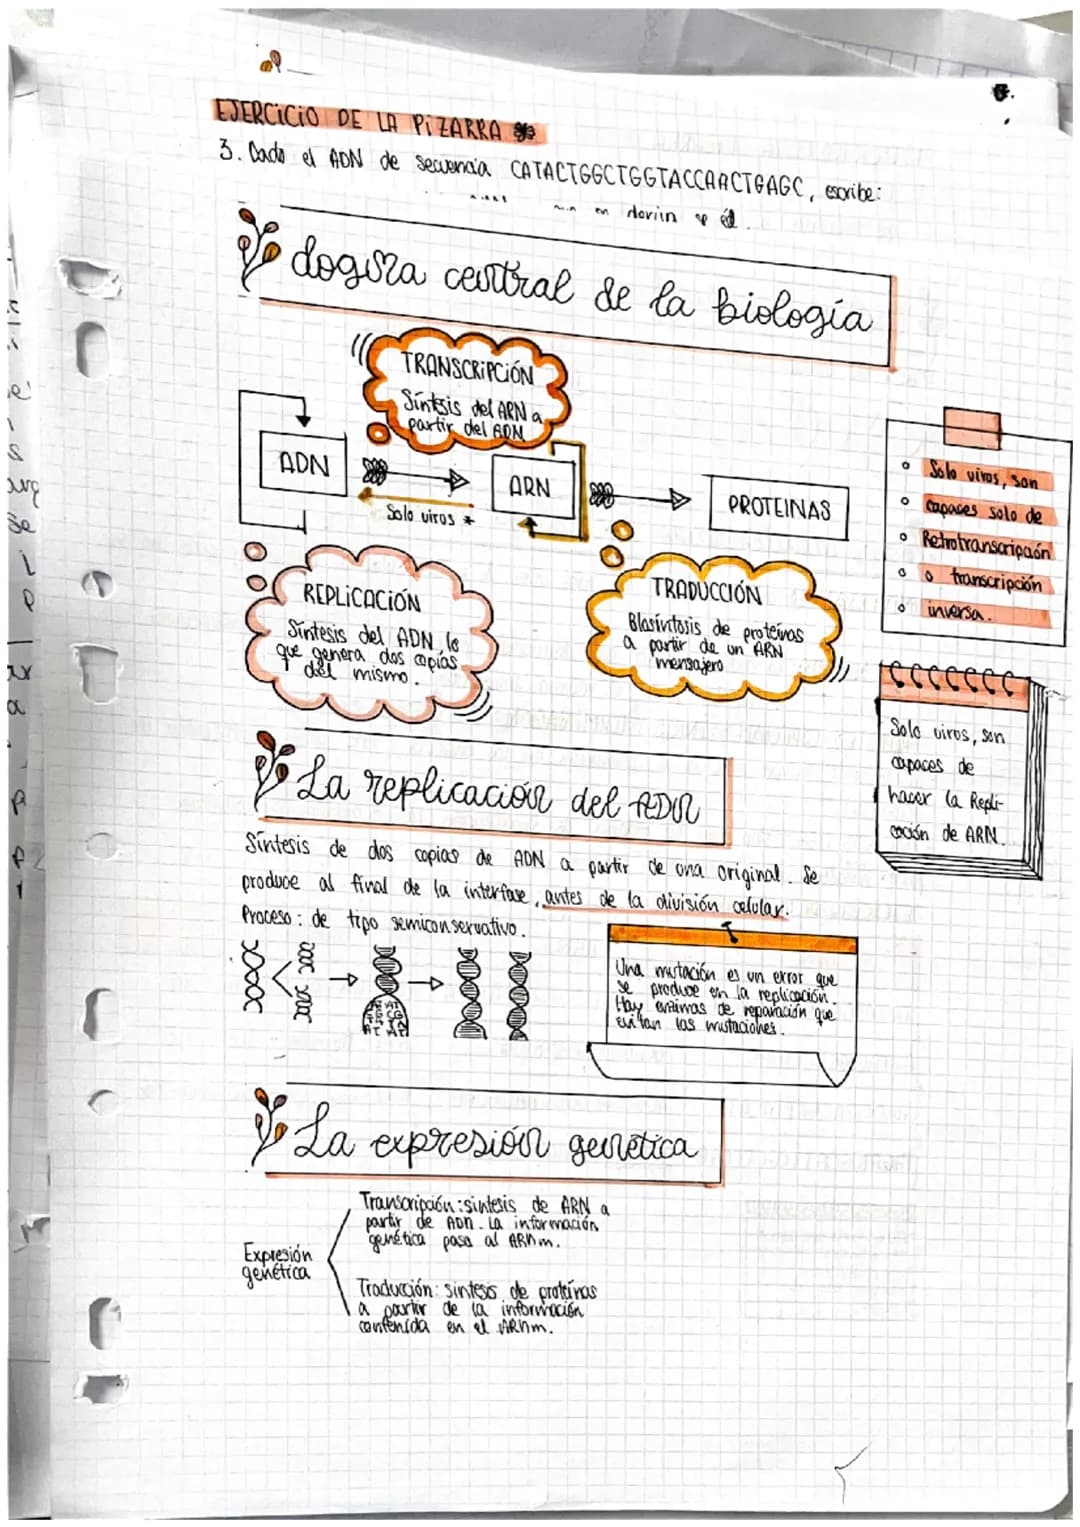 EJERCICIO DE LA PIZARRA
3. Dado el ADN de secuencia CATACTGGCTGGTACCAACTGAGC, escribe:
dogma central de la biología
TRANSCRIPCIÓN
Síntesis del ARN a
partir del ADN
ADN
ARN
PROTEINAS
Solo virus *
REPLICACIÓN
Síntesis del ADN, lo
que genera dos copias
del mismo.
TRADUCCIÓN
Biosíntesis de proteínas
a partir de un ARN
mensajero
Solo virus, son
capaces solo de
Retrotranscripción
o transcripción
inversa.
Solo virus, son
capaces de
hacer la Repli-
cación de ARN.
La replicación del ADN
Síntesis de dos copias de ADN a partir de una original. Se
produce al final de la interfase, antes de la división celular.
Proceso: de tipo semiconservativo.
Una mutación es un error que
se produce en la replicación.
Hay enzimas de reparación que
evitan las mutaciones.
La expresión genética
Expresión
genética
Transcripción: síntesis de ARN a
partir de ADN. La información
genética pasa al ARNm.
Traducción: síntesis de proteínas
a partir de la información
contenida en el ARNm.